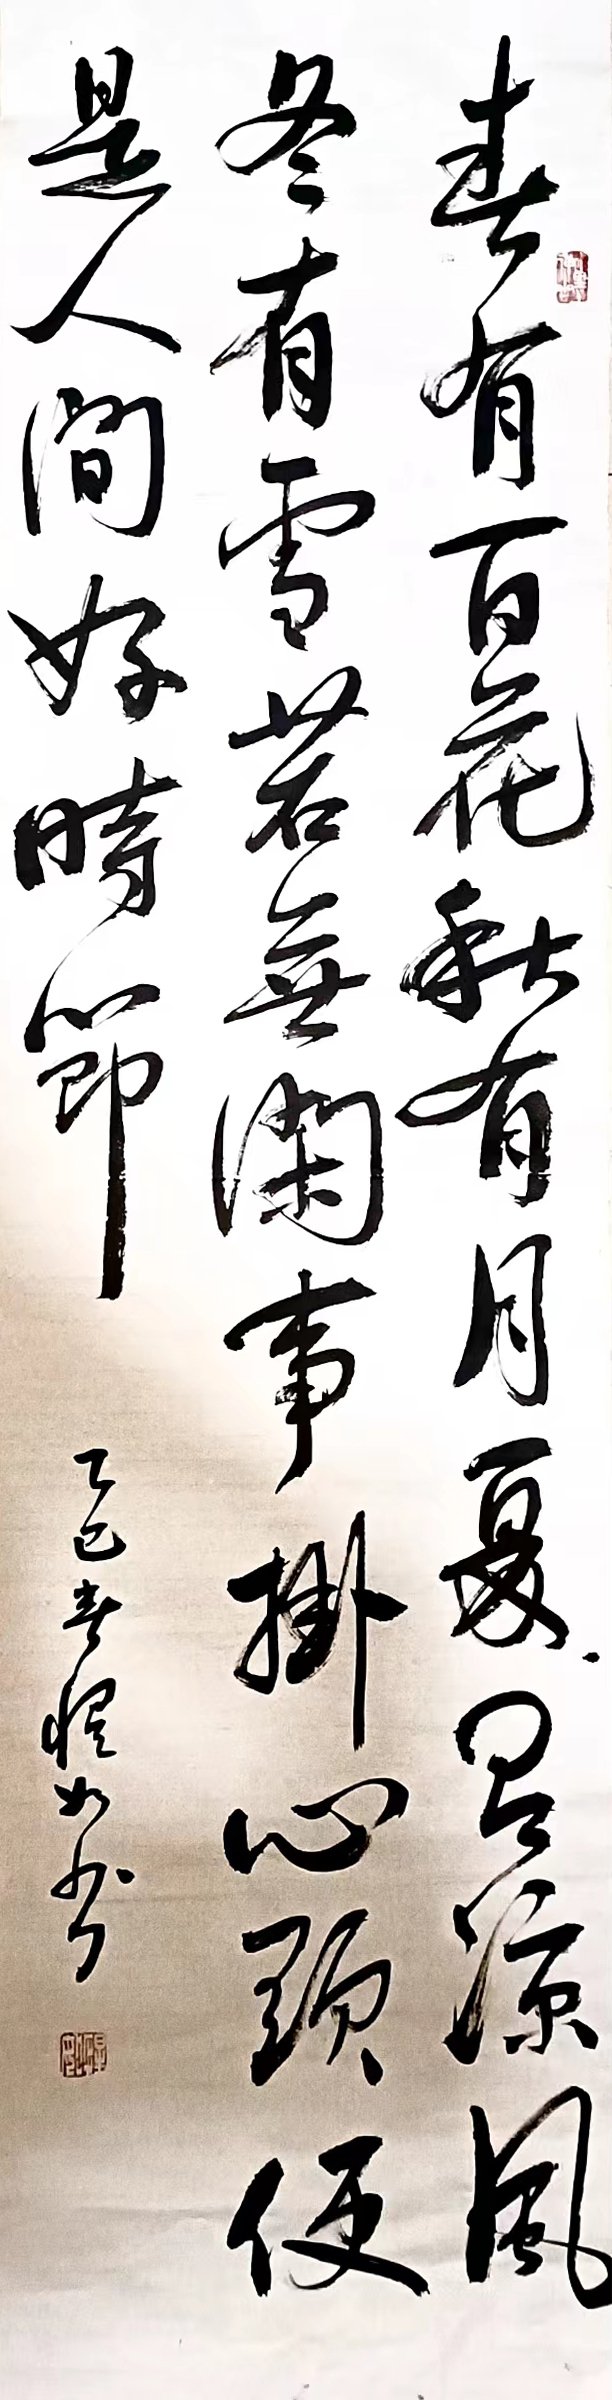 春有百花秋有月夏有涼風
冬有雪若無閑事掛心頭便
是人間好時節
乙巳春